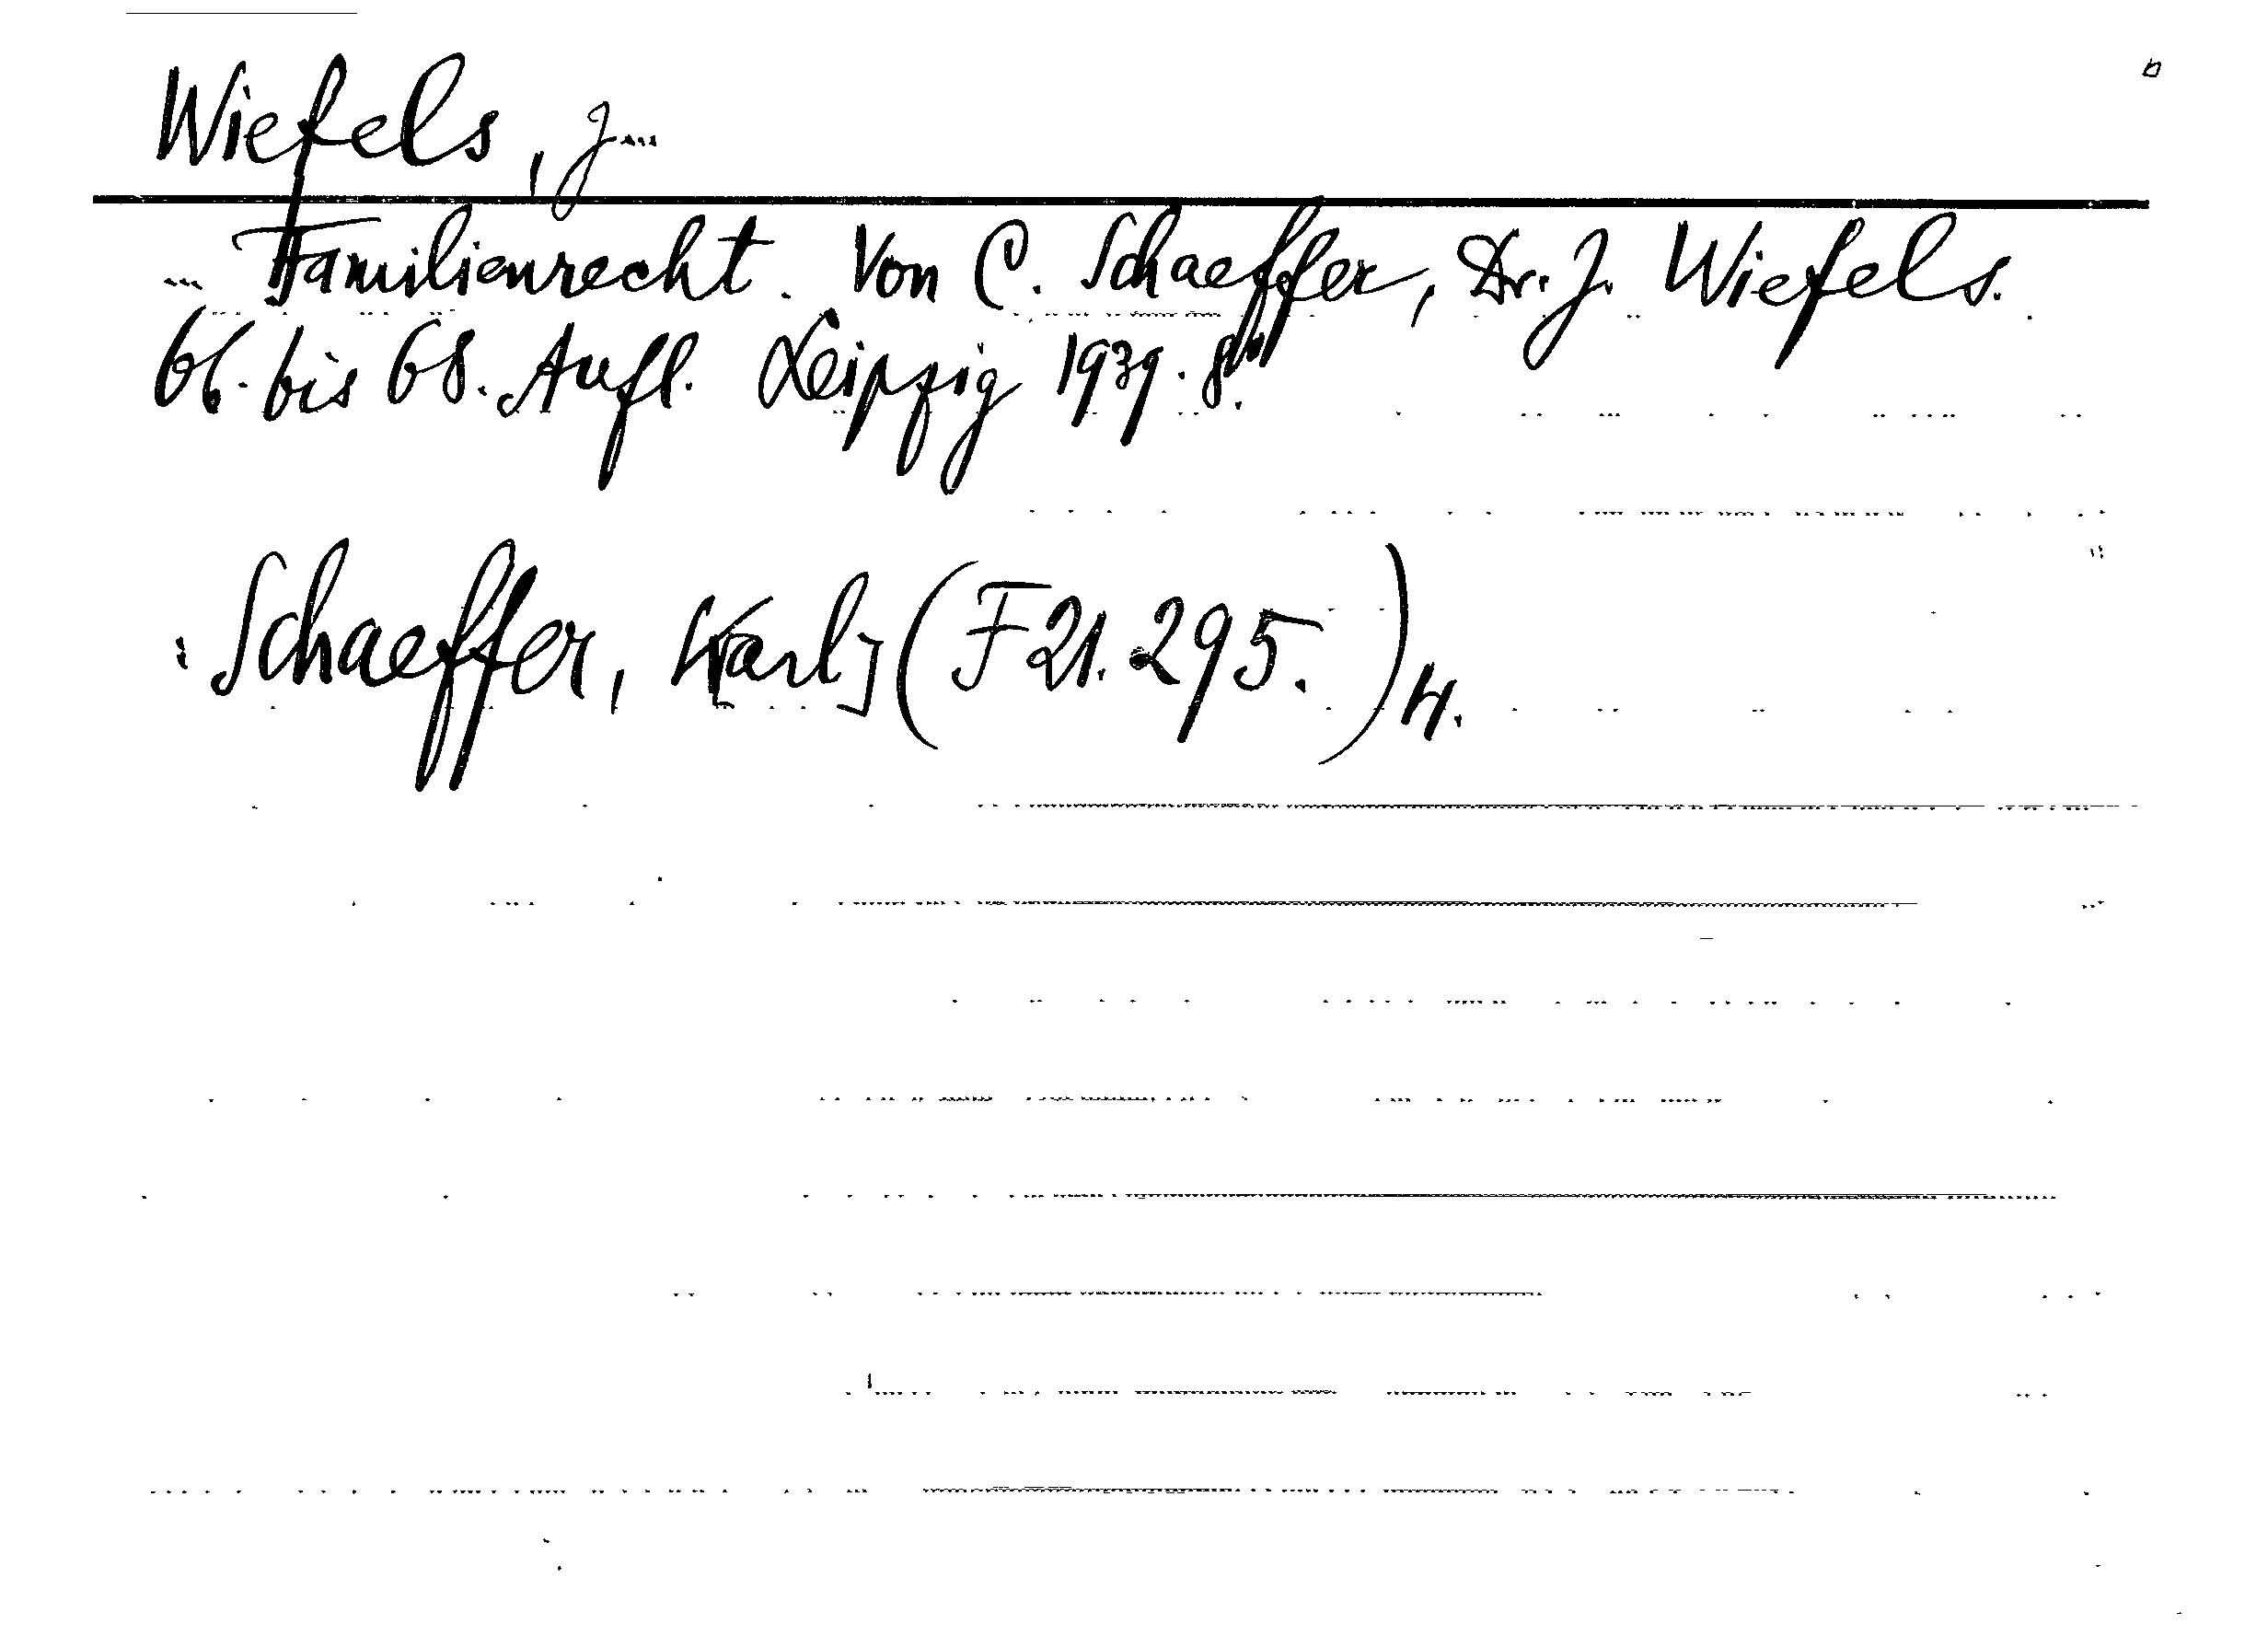 Wiefels, J...
... Familienrecht. Von C. Schaeffer, Dr. J. Wiefels.
66. bis 68. Aufl. Leipzig 1939. 8°.
: Schaeffer, Karl] (F 21. 295.) 4.